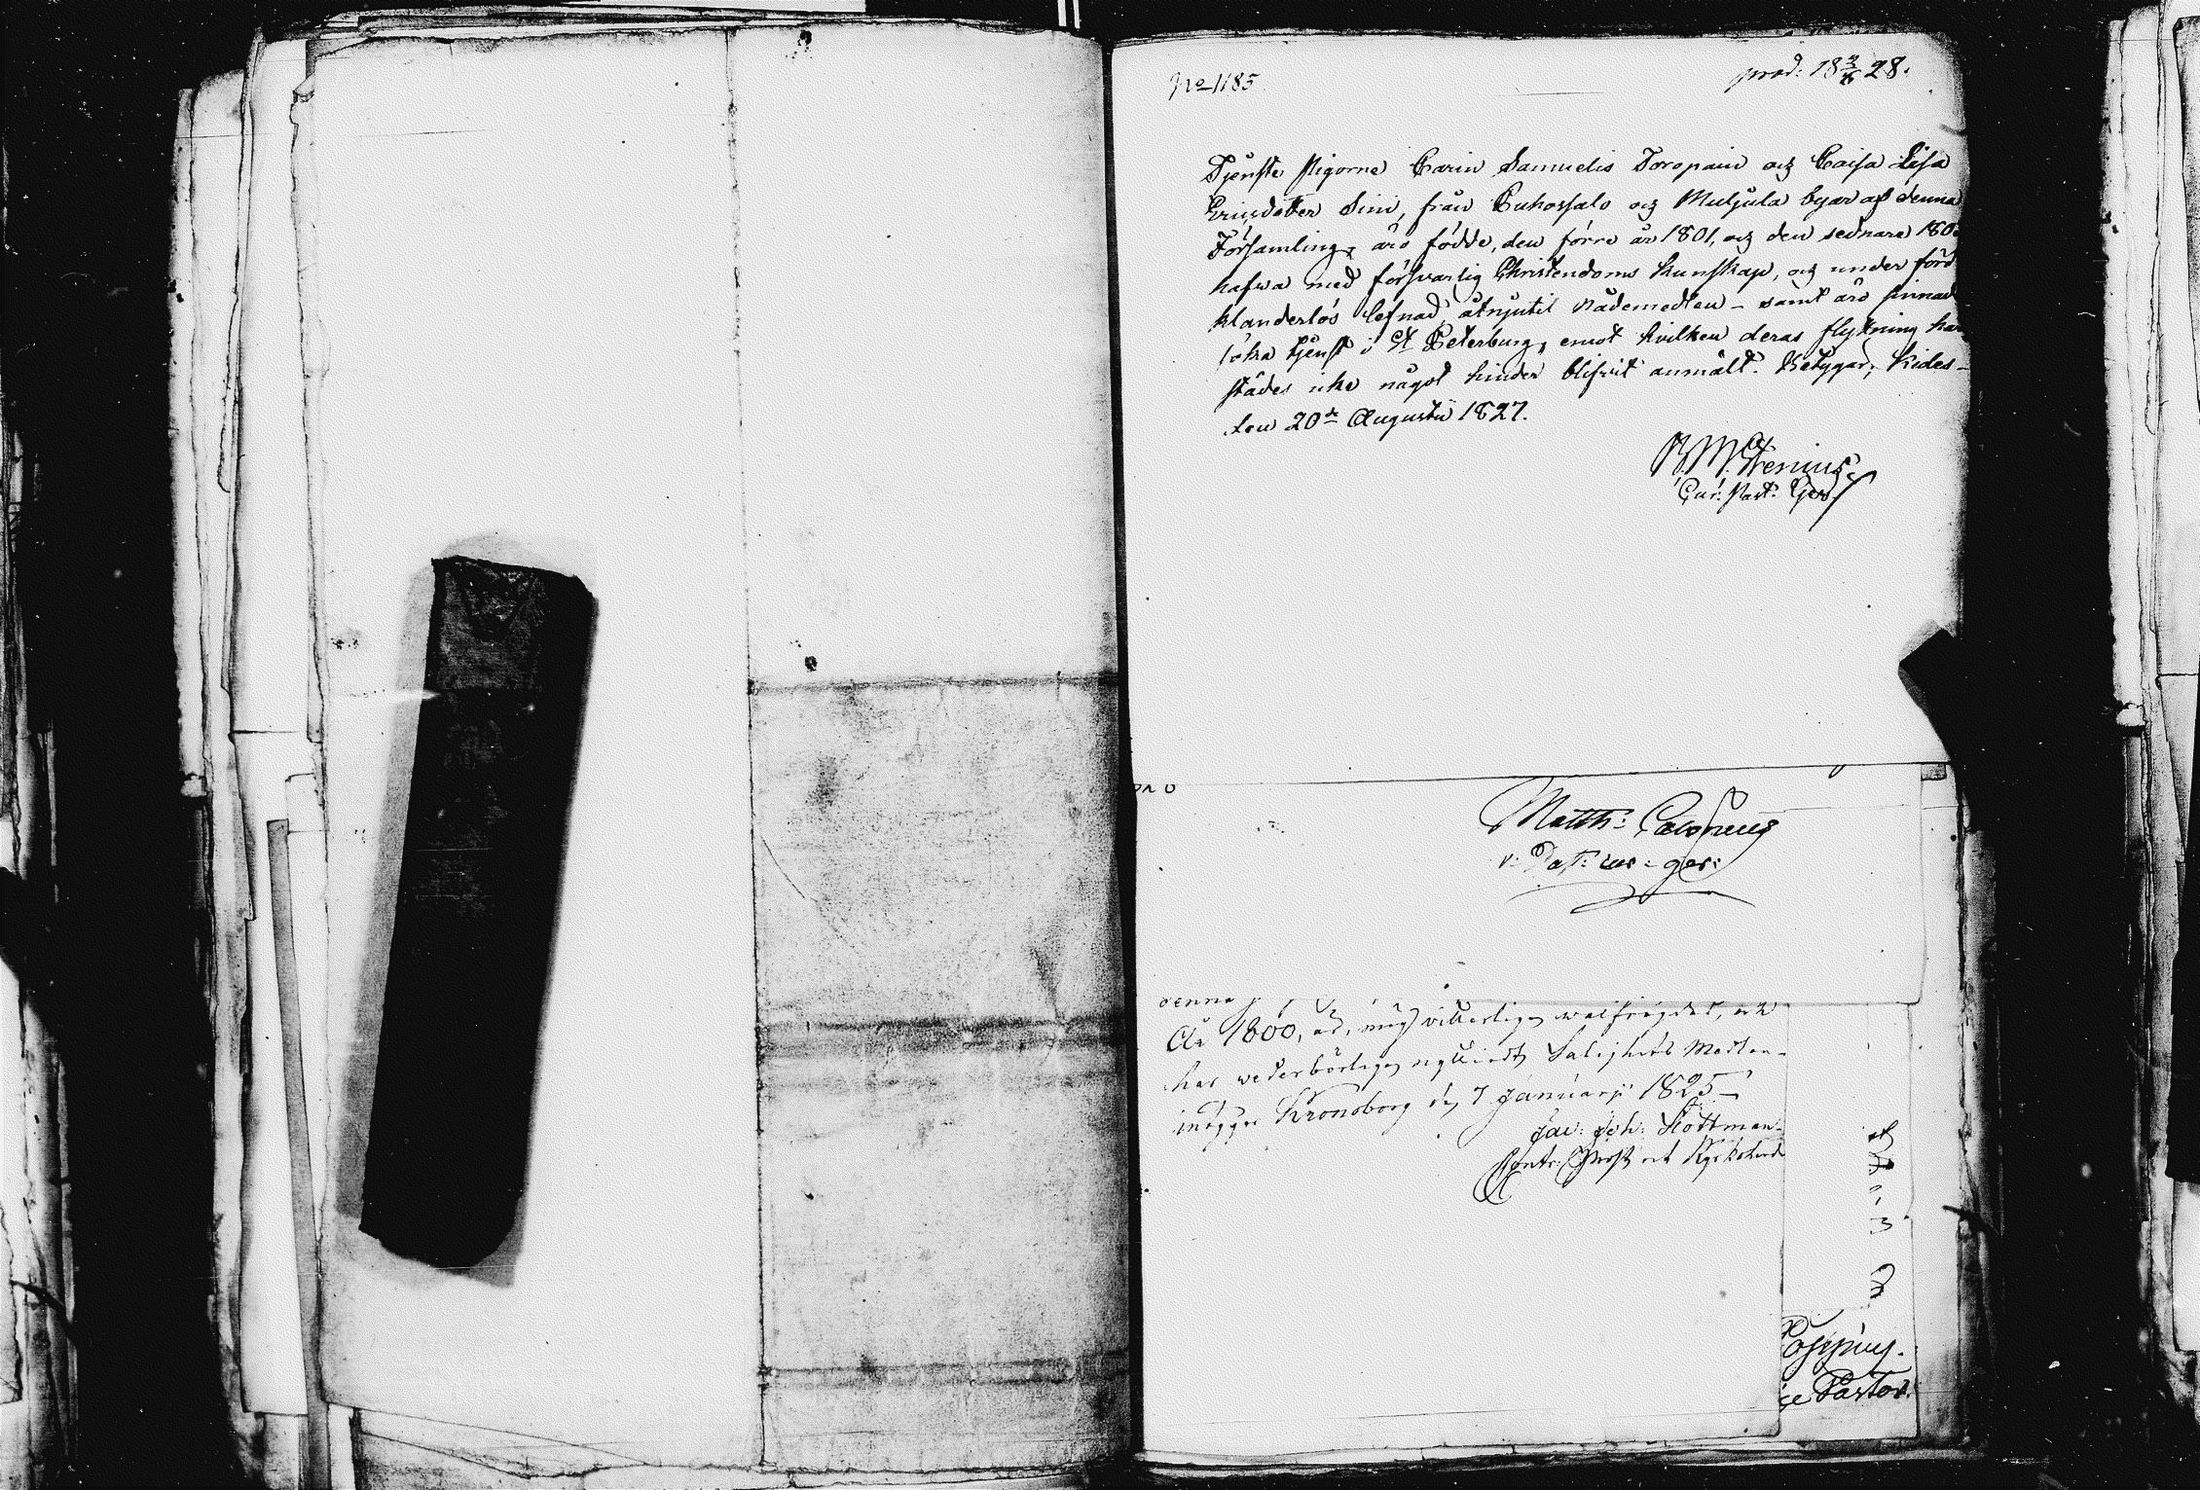 No 1185.
prod: 18 28.
Tjenste pigorne Carin Samuelis Toropain och Caisa Lisa
Ericsdotter Sini, från Puhossalo och Muljula byar af denna
Församling, äro födde, den förre år 1801, och den sednare 180
hafwa med försvarlig Christendoms kunskap, och under förd
klanderlös lefnad, åtnjutit Nådemedlen - samt äro sinnad
söka tjenst i St Peterburg, emot hvilken deras flyttning här
städes icke något hinder blifvit anmält. Betygar, Kides-
den 20de Augustii 1827.
Cur: Past: Ger.
Matth:
v: Past: ger:
denna
År 1800, är, mig vitterligen, och
har wederbörligen Salighets Medlen
intygar Kronoborg den 7 Januarji 1825-
Jac: Joh: Hottman.
Contr: Prost och Kyrkoherde
Poppius.
ce Pastor.